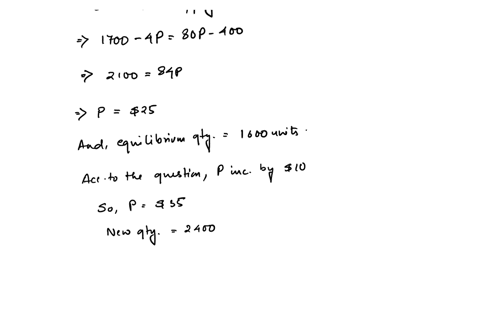 => 1700 - 4P = 80P - 400
=> 2100 = 84P
=> P = $25
And, equilibrium qty. = 1600 units.
Acc. to the question, P inc. by $10
So, P = $35
New qty. = 2400